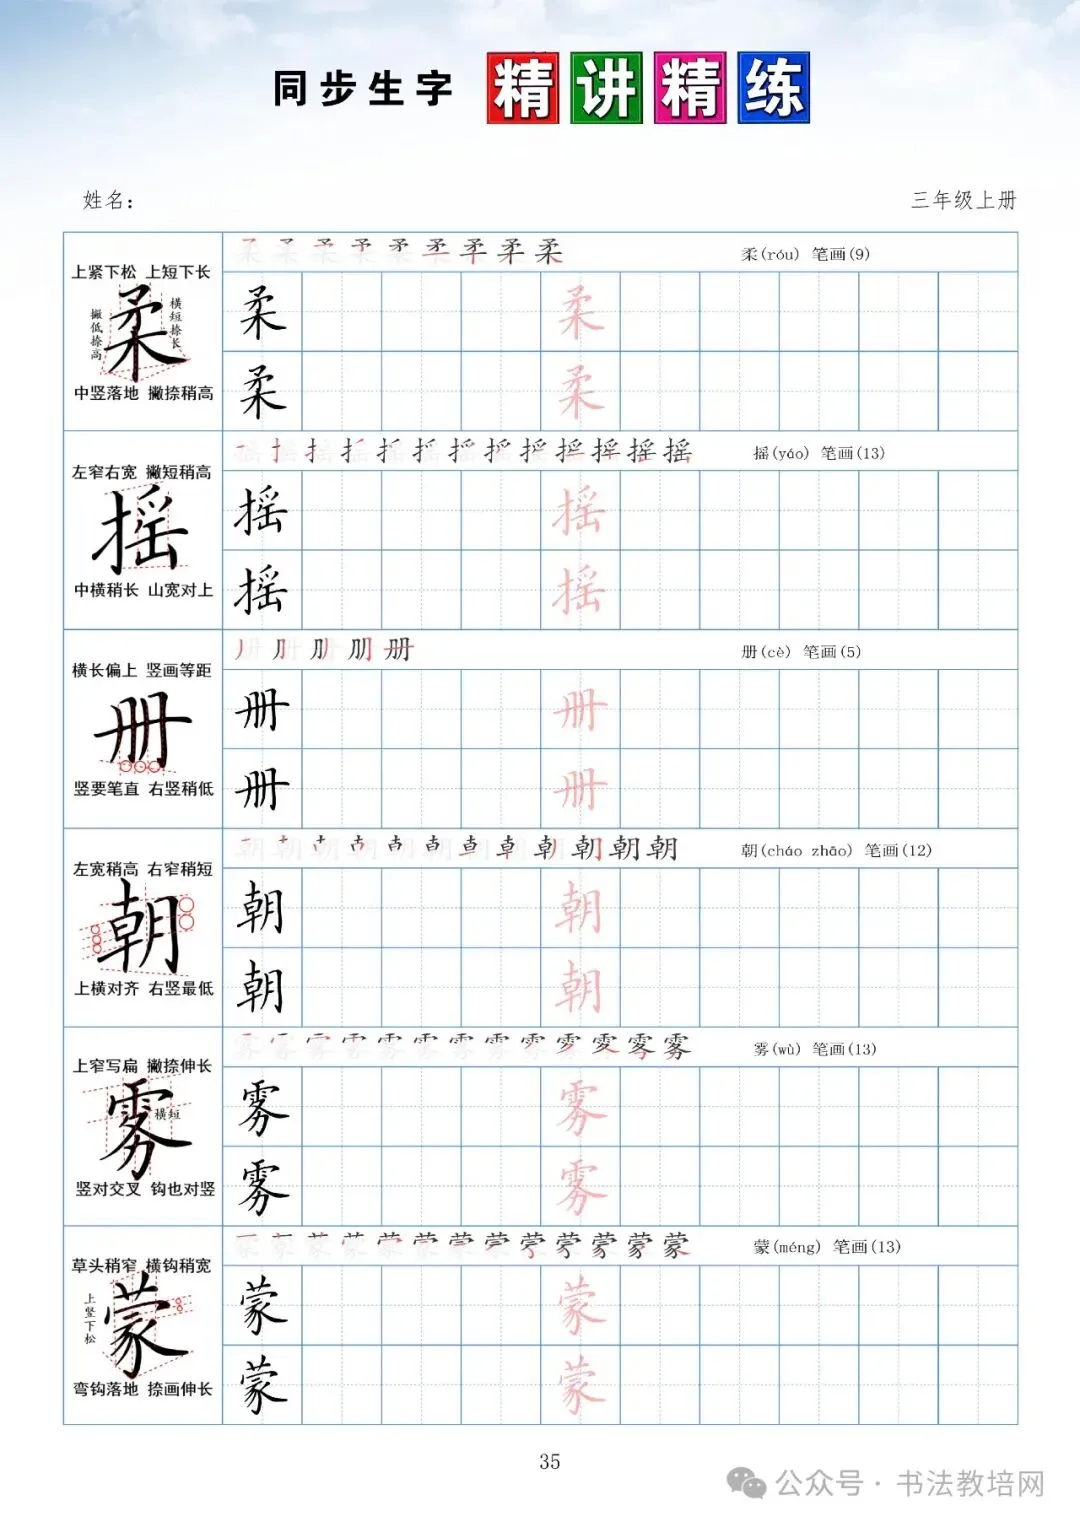 同步生字 精讲精练
姓名：
三年级上册
上紧下松 上短下长
撇低捺高
柔
横短捺长
中竖落地 撇捺稍高
柔 柔 柔 柔 柔 柔 柔 柔 柔
柔(róu) 笔画(9)
柔 柔
柔 柔
左窄右宽 撇短稍高
摇
中横稍长 山宽对上
摇(yáo) 笔画(13)
摇 摇
摇 摇
横长偏上 竖画等距
册
竖要笔直 右竖稍低
册(cè) 笔画(5)
册 册
册 册
左宽稍高 右窄稍短
朝
上横对齐 右竖最低
朝(cháo zhāo) 笔画(12)
朝 朝
朝 朝
上窄写扁 撇捺伸长
雾
横短
竖对交叉 钩也对竖
雾(wù) 笔画(13)
雾 雾
雾 雾
草头稍窄 横钩稍宽
上竖下松
蒙
弯钩落地 捺画伸长
蒙(méng) 笔画(13)
蒙 蒙
蒙 蒙
35
公众号·书法教培网